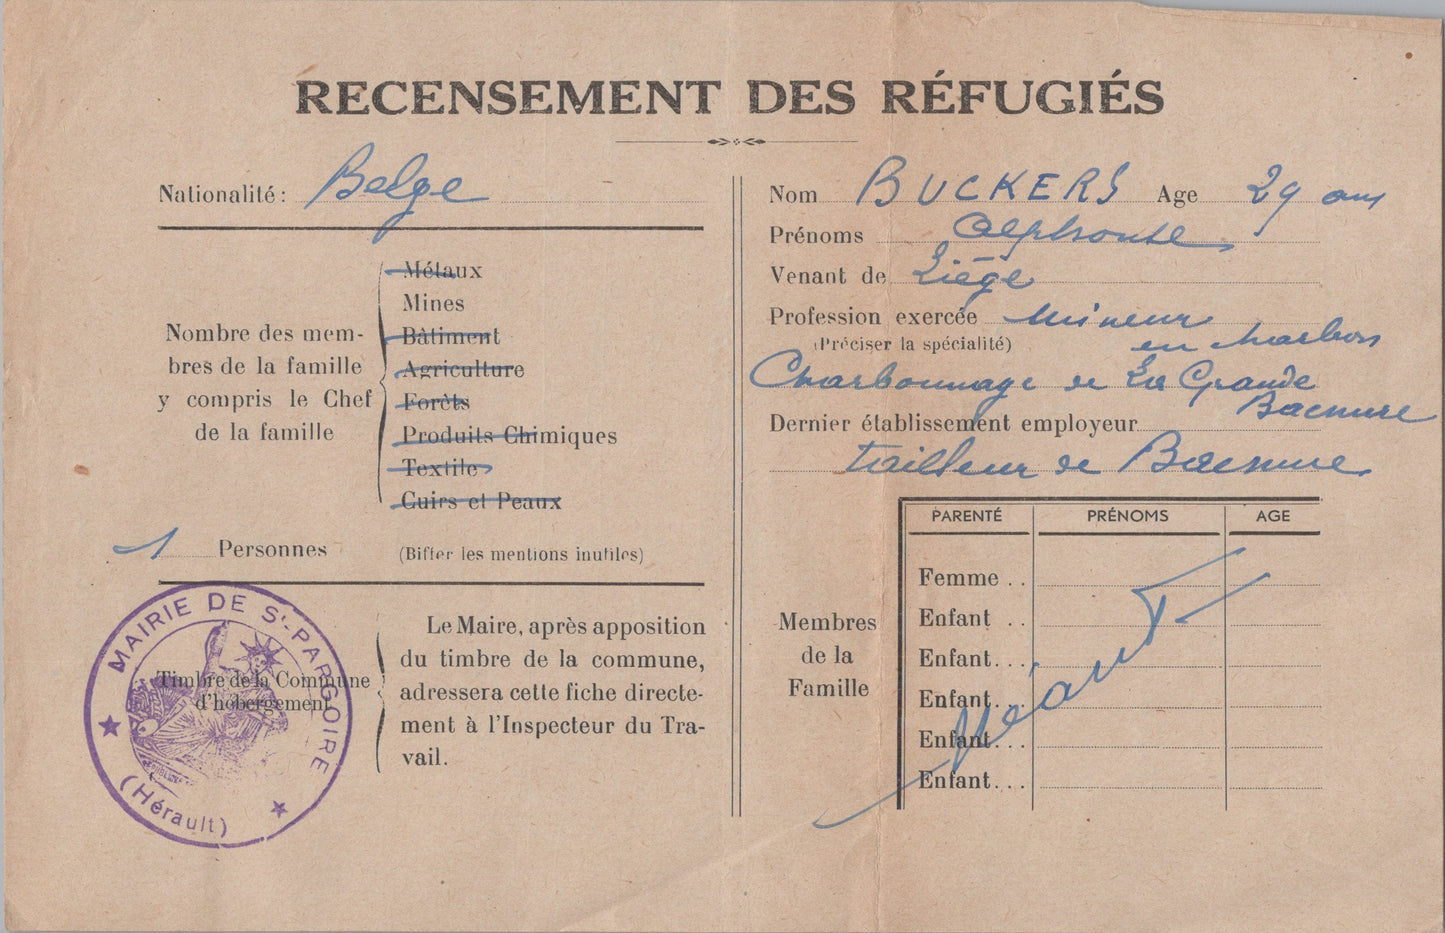 RECENSEMENT DES RÉFUGIÉS
Nationalité : Belge
Nombre des mem-
bres de la famille
y compris le Chef
de la famille
Métaux
Mines
Bâtiment
Agriculture
Forêts
Produits Chimiques
Textile
Cuirs et Peaux
1 Personnes
(Biffer les mentions inutiles)
MAIRIE DE St-PARGOIRE
(Hérault)
Timbre de la Commune
d'hébergement
Le Maire, après apposition
du timbre de la commune,
adressera cette fiche directe-
ment à l'Inspecteur du Tra-
vail.
Nom BUCKERS Age 29 ans
Prénoms Alphonse
Venant de Liége
Profession exercée mineur
(Préciser la spécialité) en charbon
Charbonnage de La Grande
Bacnure
Dernier établissement employeur
de Bacnure
Membres
de la
Famille
PARENTÉ PRÉNOMS AGE
Femme . .
Enfant . .
Enfant. . .
Enfant. . .
Enfant. . .
Enfant. . .
Néant